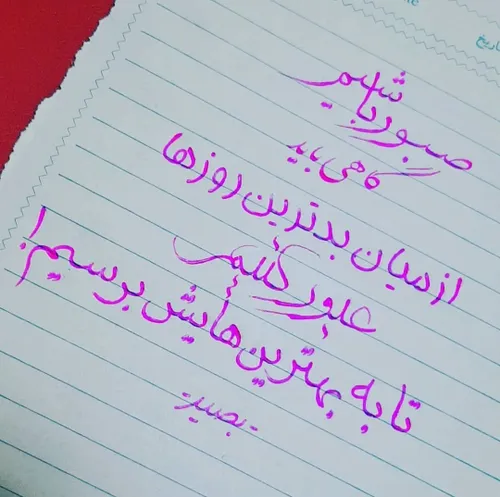 صبور باشیم
گاهی باید
از میان بدترین روزها
عبور کنیم
تا به بهترین هایش برسیم!